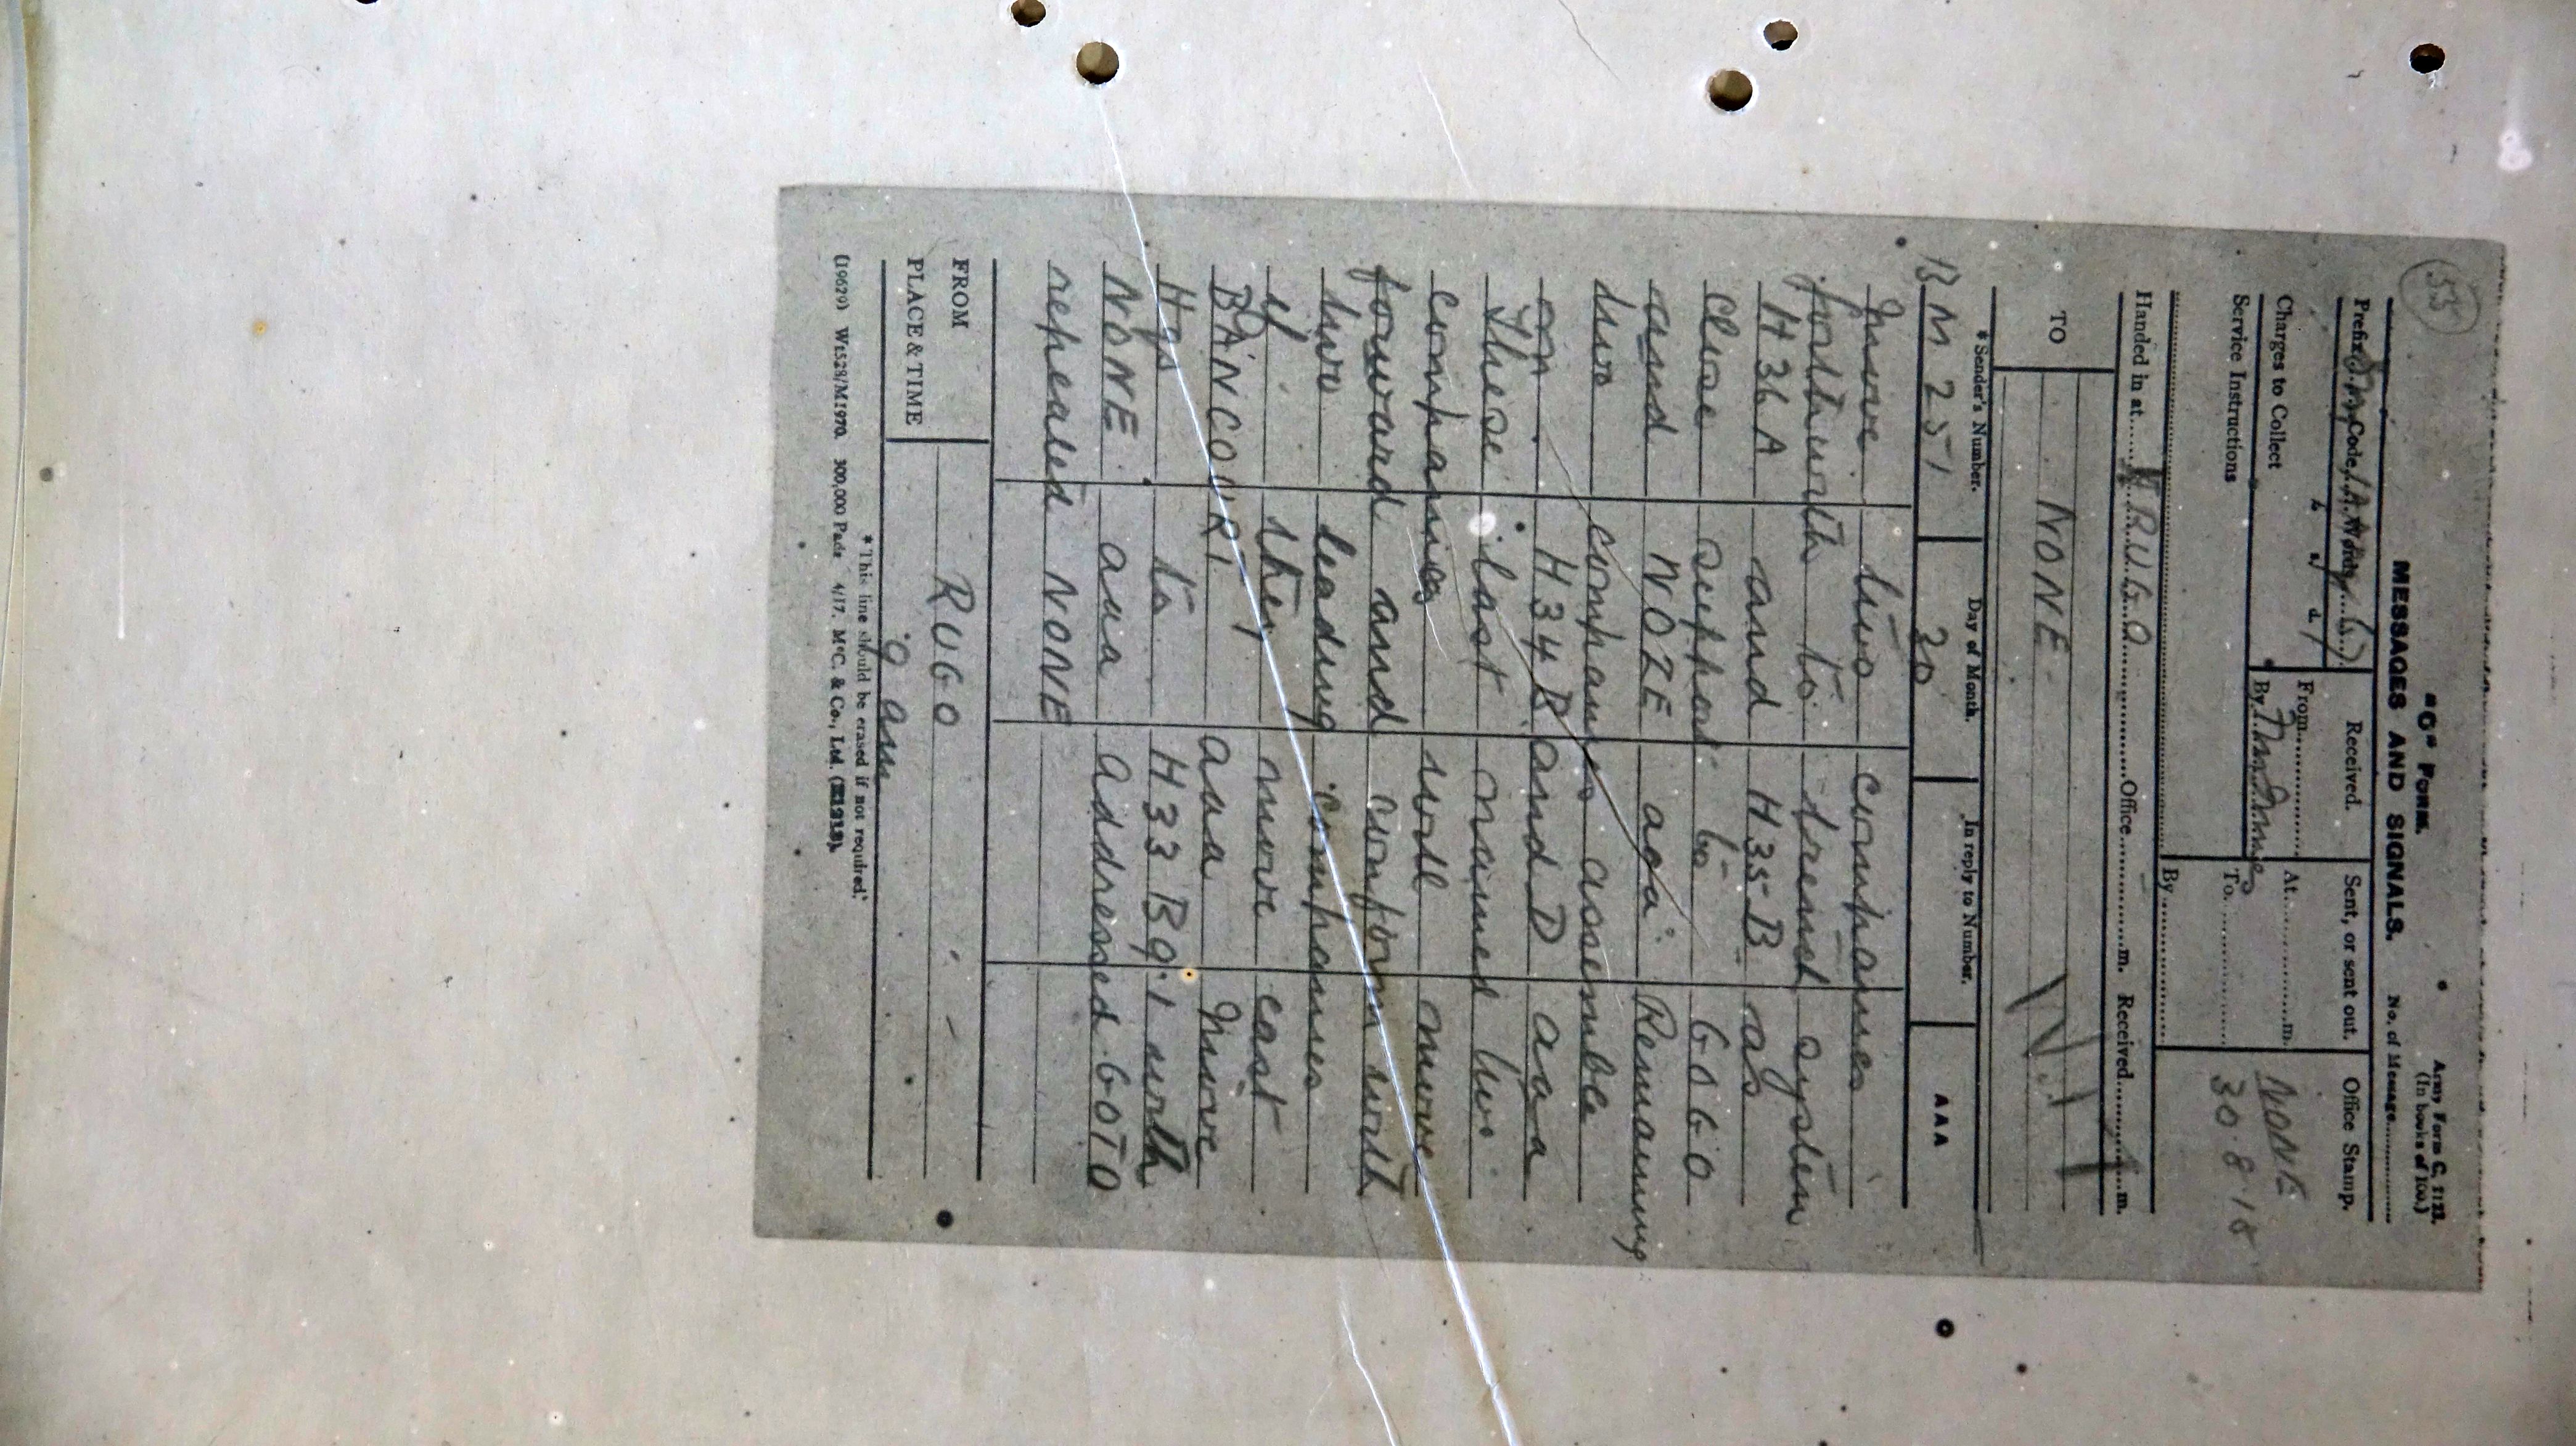 535
"C" FORM.
Army Form C. 2123.
(In books of 100.)
MESSAGES AND SIGNALS.
No. of Message
Prefix SM Code
Received.
Sent, or sent out.
Office Stamp.
Charges to Collect
From
At m.
NONE
Service Instructions
By
To
30.8.18
By
Handed in at RUGO Office m. Received m.
TO
NONE
*Sender's Number.
Day of Month.
In reply to Number.
AAA
BM 251
30
Move two companies
forthwith to trench system
H 36 A and H 35 B as
close support to GOGO
and NOZE aaa Remaining
two companies assemble
on H 34 B and D aaa
These last named two
companies will move
forward and conform with
two leading companies
if they move east
BANCOURT aaa Move
Hqs to H 33 B 9.1 with
NONE aaa addressed GOTO
repeated NONE
FROM
RUGO
PLACE & TIME
9 am
*This line should be erased if not required.
(19629) Wt528/M1970. 300,000 Pads 4/17. McC. & Co., Ltd. (E1213).